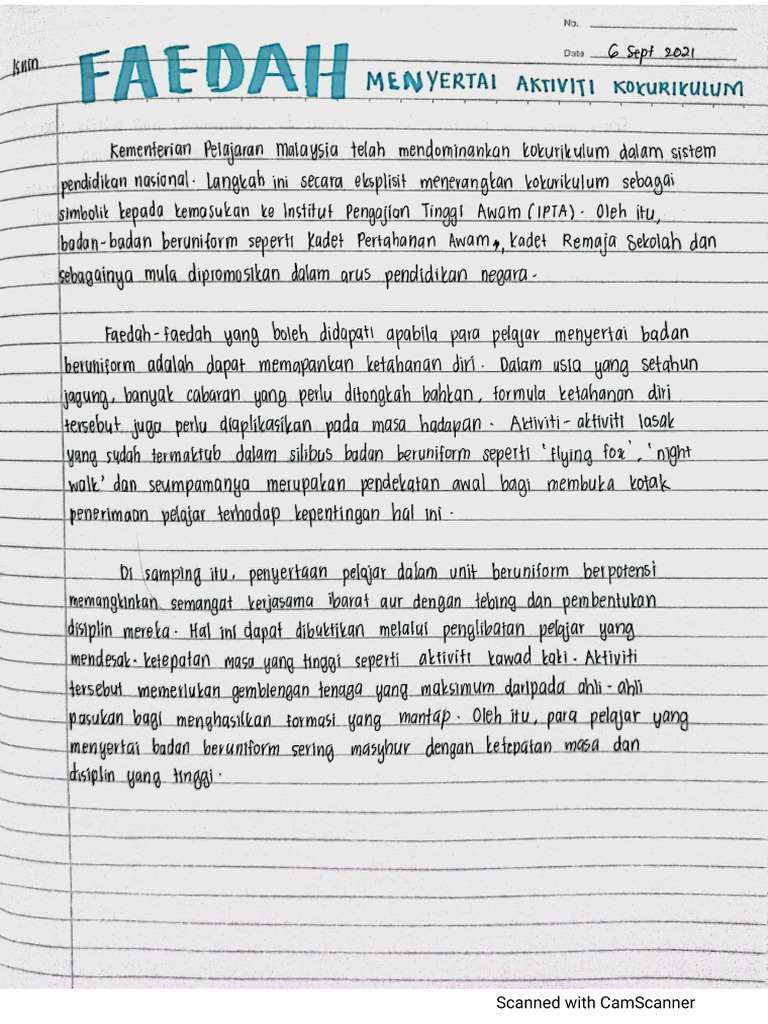 No.
Date 6 Sept 2021
Isnin
FAEDAH MENYERTAI AKTIVITI KOKURIKULUM
Kementerian Pelajaran Malaysia telah mendominankan kokurikulum dalam sistem
pendidikan nasional. Langkah ini secara eksplisit menerangkan kokurikulum sebagai
simbolik kepada kemasukan ke Institut Pengajian Tinggi Awam (IPTA). Oleh itu,
badan-badan beruniform seperti Kadet Pertahanan Awam, Kadet Remaja Sekolah dan
sebagainya mula dipromosikan dalam arus pendidikan negara.
Faedah-faedah yang boleh didapati apabila para pelajar menyertai badan
beruniform adalah dapat memapankan ketahanan diri. Dalam usia yang setahun
jagung, banyak cabaran yang perlu ditongkah bahkan, formula ketahanan diri
tersebut juga perlu diaplikasikan pada masa hadapan. Aktiviti-aktiviti lasak
yang sudah termaktub dalam silibus badan beruniform seperti 'flying fox', 'night
walk' dan seumpamanya merupakan pendekatan awal bagi membuka kotak
penerimaan pelajar terhadap kepentingan hal ini.
Di samping itu, penyertaan pelajar dalam unit beruniform berpotensi
memangkinkan semangat kerjasama ibarat aur dengan tebing dan pembentukan
disiplin mereka. Hal ini dapat dibuktikan melalui penglibatan pelajar yang
mendesak ketepatan masa yang tinggi seperti aktiviti kawad kaki. Aktiviti
tersebut memerlukan gemblengan tenaga yang maksimum daripada ahli-ahli
pasukan bagi menghasilkan formasi yang mantap. Oleh itu, para pelajar yang
menyertai badan beruniform sering masyhur dengan ketepatan masa dan
disiplin yang tinggi.
Scanned with CamScanner